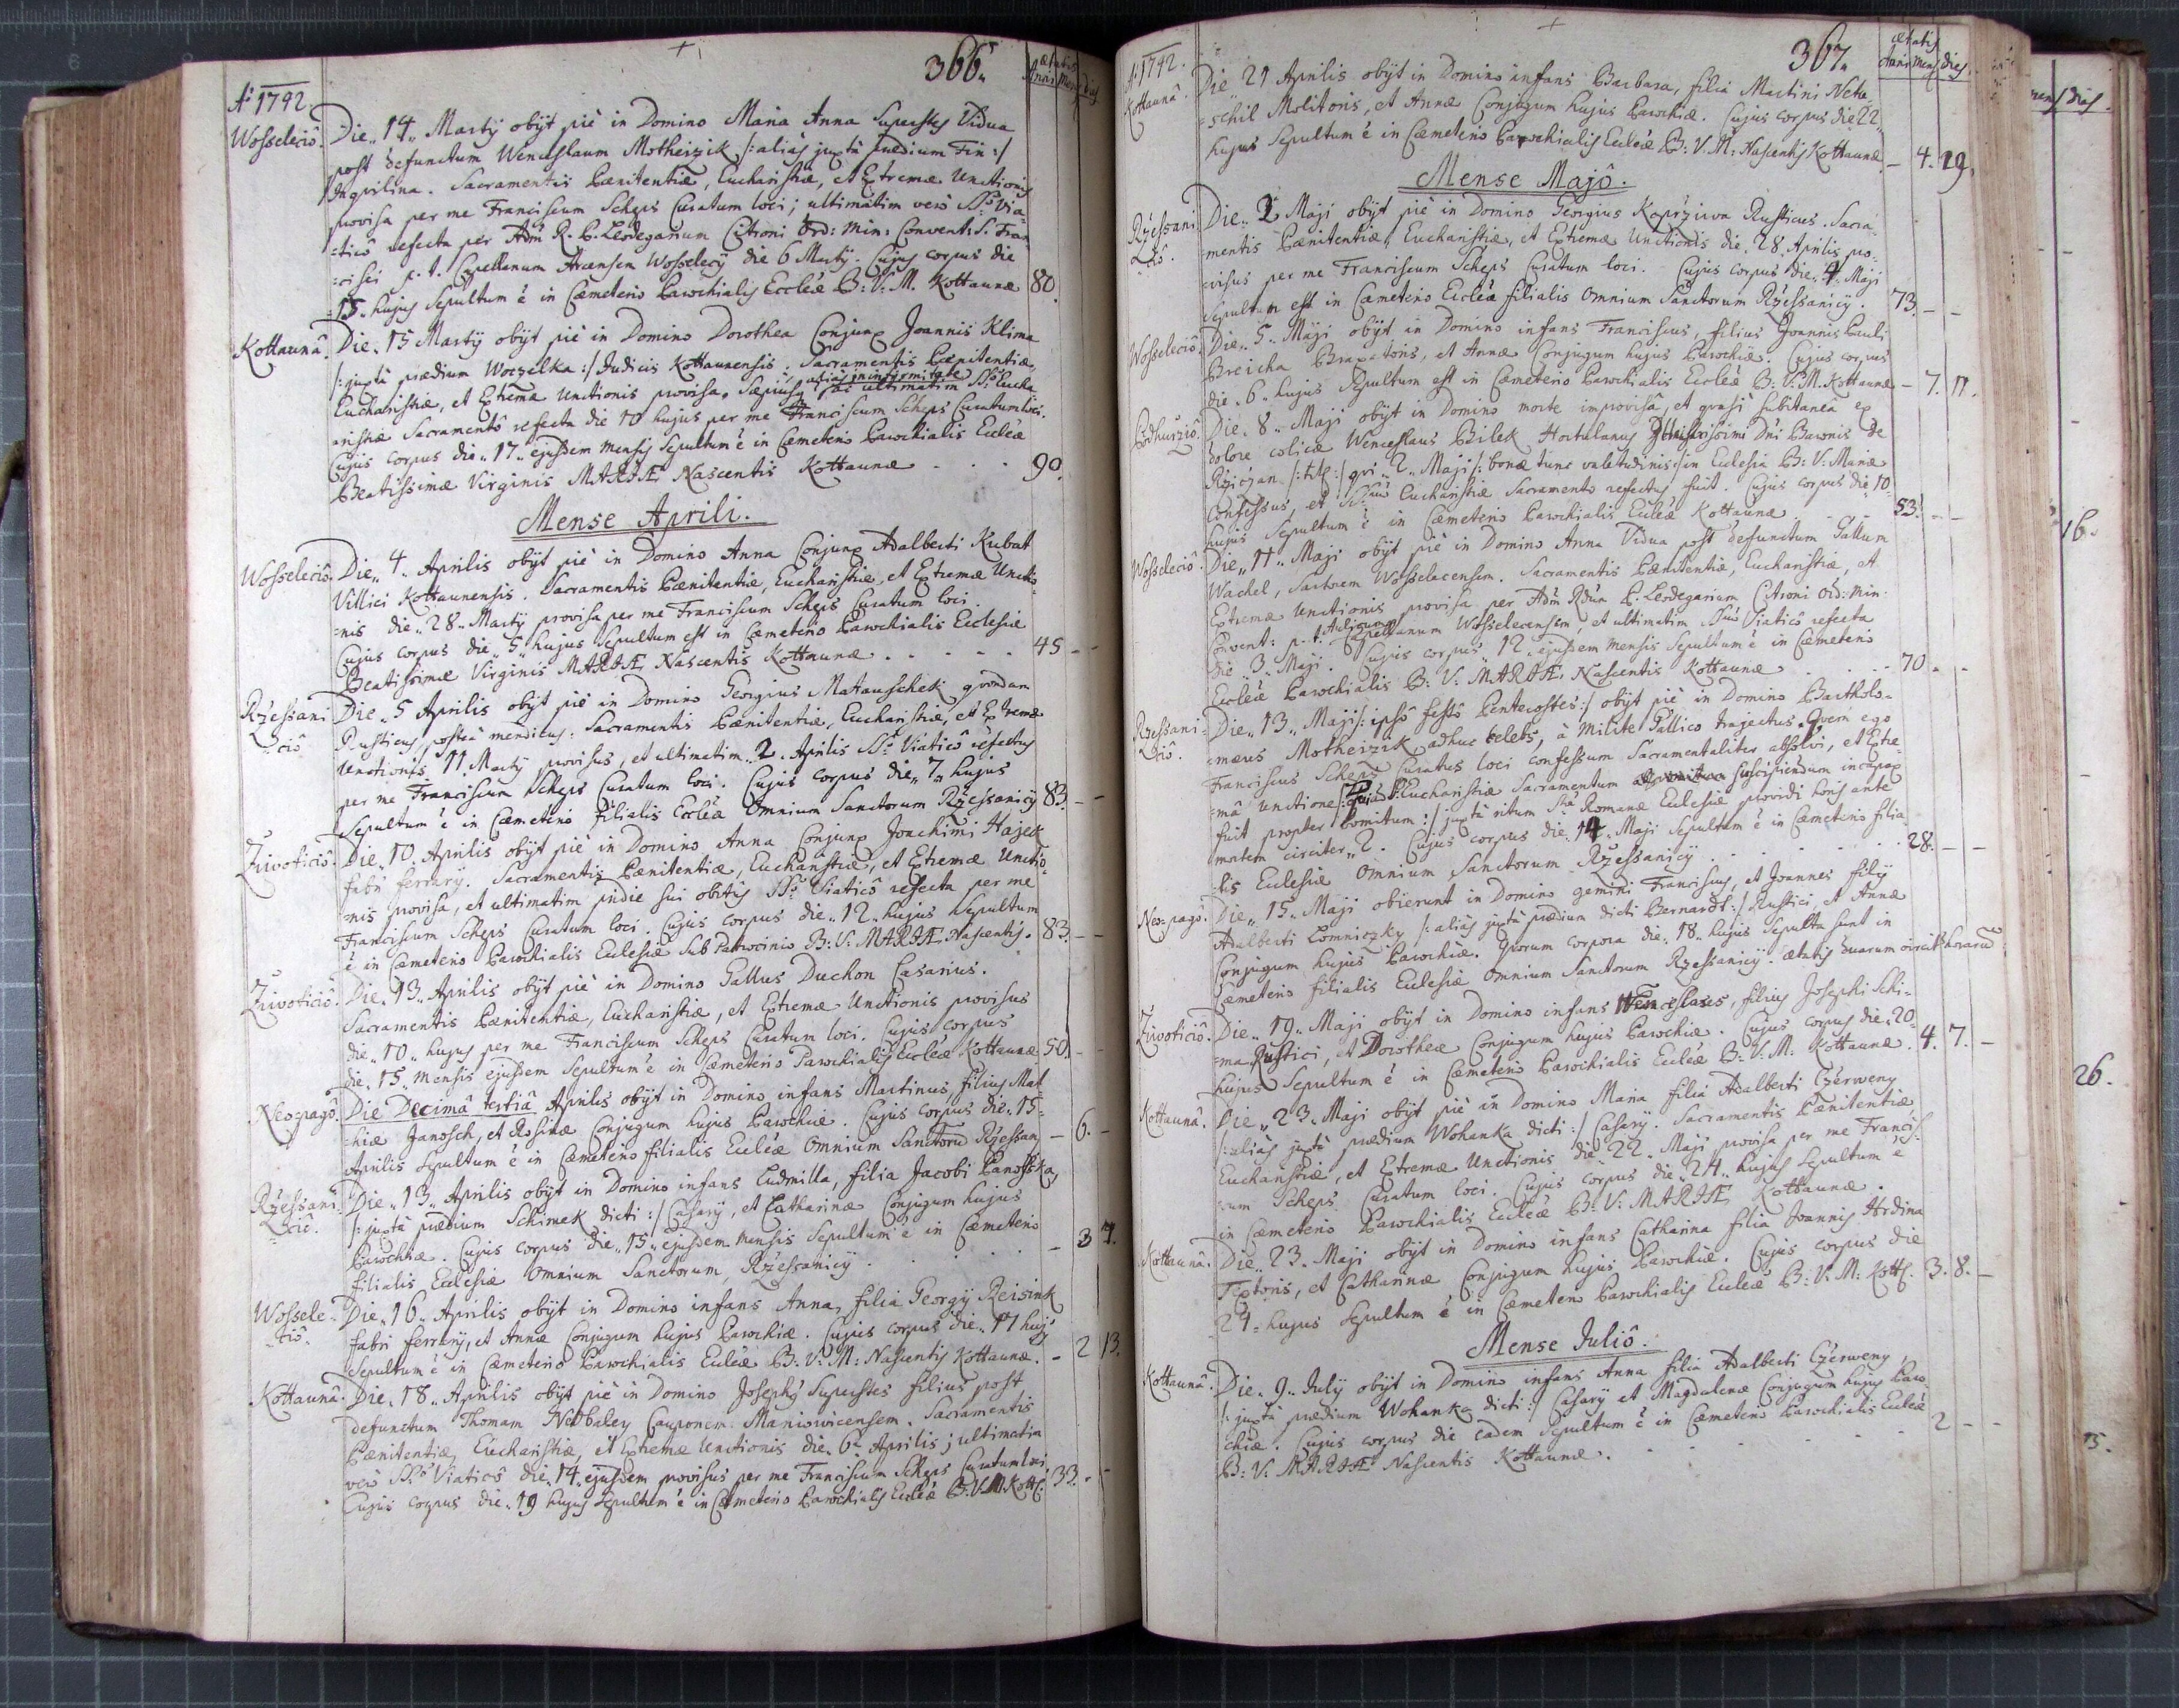 366.
Aô 1742
ætatis
Anni Mens dies
Wosseleciô. Die „ 14 „ Martÿ obÿt piè in Domino Maria Anna Superstes Vidua
post defunctum Wenceslaum Motheizik /: aliàs juxtà prædium Fin :/
Inqvilina. Sacramentis Pænitentiæ, Eucharistiæ, et Extremæ Unctionis
provisa per me Franciscum Scheps Curatum loci; ultimatim verò SS. Via-
=ticô refecta per Adm R. P. Leodegarium Citroni Ord: Min: Convent: S. Fran
=cisci p. t. Capellanum Arcensem Wosselecÿ die 6 Martÿ. Cujus corpus die
15 „ hujus Sepultum ê in Cæmeterio Parochialis Eccleæ B: V: M. Kottaunæ 80.
Kottaunâ. Die „ 15 Martÿ obÿt piè in Domino Dorothea Conjunx Joannis Klima
/: juxtà prædium Woczelka :/ Judicis Kottaunensis. Sacramentis Pænitentiæ,
Eucharistiæ, et Extremæ Unctionis provisa. Sæpius aliàs in infirmitate ultimatim SS. Eucha
=ristiæ Sacramentô refecta die 10 hujus per me Franciscum Scheps Curatum loci.
Cujus corpus die „ 17 „ ejusdem mensis Sepultum ê in Cæmeterio Parochialis Eccleæ
Beatissimæ Virginis MARIÆ Nascentis Kottaunæ - - - 90.
Mense Aprili.
Wosseleciô. Die „ 4 „ Aprilis obÿt piè in Domino Anna Conjunx Adalberti Kubat
Villici Kottaunensis. Sacramentis Pænitentiæ, Eucharistiæ, et Extremæ Unctio
=nis die „ 28 „ Martÿ provisa per me Franciscum Scheps Curatum loci
Cujus corpus die „ 5 „ hujus Sepultum est in Cæmeterio Parochialis Ecclesiæ
Beatissimæ Virginis MARIÆ Nascentis Kottaunæ . - - - - - 45 - -
Rzessani
=ciô Die „ 5 Aprilis obÿt piè in Domino Georgius Matauschek qvondam
Rusticus, posteà mendicus. Sacramentis Pænitentiæ, Eucharistiæ, et Extremæ
Unctionis 11 Martÿ provisus, et ultimatim „ 2 „ Aprilis SS. Viaticô refectus
per me Franciscum Scheps Curatum loci. Cujus corpus die „ 7 „ hujus
Sepultum ê in Cæmeterio filialis Eccleæ Omnium Sanctorum Rzessanicÿ 83. - -
Ziwoticiô. Die „ 10 „ Aprilis obÿt piè in Domino Anna Conjunx Joachimi Hajek
fabri ferrarÿ. Sacramentis Pænitentiæ, Eucharistiæ, et Extremæ Unctio
=nis provisa, et ultimatim pridie sui obitûs SS. Viaticô refecta per me
Franciscum Scheps Curatum loci. Cujus corpus die „ 12 „ hujus Sepultum
ê in Cæmeterio Parochialis Ecclesiæ sub Patrocinio B: V: MARIÆ Nascentis. 83. - -
Ziwoticiô. Die „ 13 „ Aprilis obÿt piè in Domino Gallus Duchon Casarius.
Sacramentis Pænitentiæ, Eucharistiæ, et Extremæ Unctionis provisus
die „ 10 „ hujus per me Franciscum Scheps Curatum loci. Cujus corpus
die „ 15 „ mensis ejusdem Sepultum ê in Cæmeterio Parochialis Eccleæ Kottaunæ 50. - -
Neo=pagô. Die Decimâ tertiâ Aprilis obÿt in Domino infans Martinus, filius Mat
=thiæ Janosch, et Rosinæ Conjugum hujus Parochiæ. Cujus corpus die „ 15 =
Aprilis Sepultum ê in Cæmeterio filialis Eccleæ Omnium Sanctorū Rzessan - 6. -
Rzessani=
=ciô. Die „ 13 „ Aprilis obÿt in Domino infans Ludmilla, filia Jacobi Panosska,
/: juxtà prædium Schimek dicti :/ Casarÿ, et Catharinæ Conjugum hujus
Parochiæ. Cujus corpus die „ 15 „ ejusdem mensis Sepultum ê in Cæmeterio
filialis Ecclesiæ Omnium Sanctorum, Rzessanicÿ . . . . - 3 7.
Wossele-
=ciô. Die „ 16 „ Aprilis obÿt in Domino infans Anna, filia Georgÿ Reisink
fabri ferrarÿ, et Annæ Conjugum hujus Parochiæ. Cujus corpus die „ 17 hujs
Sepultum ê in Cæmeterio Parochialis Eccleæ B: V: M: Nascentis Kottaunæ. - 2 13.
Kottaunâ. Die „ 18 „ Aprilis obÿt piè in Domino Josephus Superstes filius post
defunctum Thomam Cauponem Maniowicensem. Sacramentis
Pænitentiæ, Eucharistiæ, et Extremæ Unctionis die „ 6 = Aprilis; ultimatim
verò SS. Viaticô die „ 14 „ ejusdem provisus per me Franciscum Scheps Curatum loci
Cujus corpus die „ 19 hujus Sepultum ê in Cæmeterio Parochialis Eccleæ B. V. M. Kott. 33. - -
367.
Aô 1742.
ætatis
Anni Mens Dies.
Kottaunâ. Die „ 21 Aprilis obÿt in Domino infans Barbara, filia Martini Netu
=schil Molitoris, et Annæ Conjugum hujus Parochiæ. Cujus corpus die 22 „
hujus Sepultum ê in Cæmeterio Parochialis Eccleæ B: V. M: Nascentis Kottaunæ - 4. 29.
Mense Majô.
Rzessani
=ciô. Die „ 2 Maji obÿt piè in Domino Georgius Koprziwa Rusticus. Sacra-
=mentis Pænitentiæ, Eucharistiæ, et Extremæ Unctionis die „ 28 „ Aprilis pro-
=visus per me Franciscum Scheps Curatum loci. Cujus corpus die „ 4 „ Maji
Sepultum est in Cæmeterio Eccleæ filialis Omnium Sanctorum Rzessanicÿ. 73. - -
Wosseleciô. Die „ 5 „ Maji obÿt in Domino infans Franciscus, filius Joannis Pauli
Breicha Braxatoris, et Annæ Conjugum hujus Parochiæ. Cujus corpus
die „ 6 „ hujus Sepultum est in Cæmeterio Parochialis Eccleæ B: V: M. Kottaunæ - 7. 11.
Podhurziô. Die „ 8 „ Maji obÿt in Domino morte improvisâ, et qvasi subitaneâ ex
dolore colicæ Wenceslaus Bilek Hortulanus Illustrissimi Dni Baronis de
Rziczan /: titl :/ qvi „ 2 „ Maji /: bonæ tunc valetudinis :/ in Ecclesia B: V: Mariæ
Confessus, et SSmo Eucharistiæ Sacramento refectus fuit. Cujus corpus die „ 10 =
hujus Sepultum ê in Cæmeterio Parochialis Eccleæ Kottaunæ - - 53. - -
Wosseleciô. Die „ 11 „ Maji obÿt piè in Domino Anna Vidua post defunctum Gallum
Wachel, Sartorem Wosselecensem. Sacramentis Pænitentiæ, Eucharistiæ, et
Extremæ Unctionis provisa per Adm Rdum P. Leodegarium Citroni Ord: Min:
Convent: p. t. Aulicum Capellanum Wosselecensem, et ultimatim SSmo Viaticô refecta
die „ 3 „ Maji. Cujus corpus „ 12 „ ejusdem mensis Sepultum ê in Cæmeterio
Eccleæ Parochialis B: V: MARIÆ Nascentis Kottaunæ . . - - 70 - -
Rzessani-
=ciô. Die „ 13 „ Maji /: ipsô festô Pentecostes :/ obÿt piè in Domino Bartholo-
=mæus Motheizik adhuc celebs, à Milite Gallico trajectus. Qvem ego
Franciscus Scheps Curatus loci confessum Sacramentaliter absolvi, et Extre-
=mâ Unctione /: qvia Eucharistiæ Sacramentum suscipiendum incapax
fuit propter vomitum :/ juxtà ritum Stæ Romanæ Ecclesiæ providi horis ante
mortem circiter „ 2 . Cujus corpus die „ 14 „ Maji Sepultum ê in Cæmeterio filia
=lis Ecclesiæ Omnium Sanctorum Rzessanicÿ . . . - - - - 28. - -
Neo=pagô. Die „ 15 „ Maji obierunt in Domino gemini Franciscus, et Joannes filÿ
Adalberti Lomniczky /: aliàs juxtà prædium dicti Bernardt :/ Rustici, et Annæ
Conjugum hujus Parochiæ. Qvorum corpora die „ 18 „ hujus Sepulta sunt in
Cæmeterio filialis Ecclesiæ Omnium Sanctorum Rzessanicÿ. ætatis duarum circit: horarū
Ziwoticiô. Die „ 19 „ Maji obÿt in Domino infans Wenceslaus, filius Josephi Schi-
=ma Rustici, et Dorotheæ Conjugum hujus Parochiæ. Cujus corpus die „ 20 =
hujus Sepultum ê in Cæmeterio Parochialis Eccleæ B: V: M: Kottaunæ. 4. 7. -
Kottaunâ. Die „ 23 „ Maji obÿt piè in Domino Maria filia Adalberti Czerweny
/: aliàs juxtà prædium Wohanka dicti :/ Casarÿ. Sacramentis Pænitentiæ
Eucharistiæ, et Extremæ Unctionis die „ 22 „ Maji provisa per me Francis-
=cum Scheps Curatum loci. Cujus corpus die „ 24 „ hujus Sepultum ê
in Cæmeterio Parochialis Eccleæ B: V: MARIÆ Kottaunæ.
Kottaunâ. Die „ 23 „ Maji obÿt in Domino infans Catharina filia Joannis Hrdina
Textoris, et Catharinæ Conjugum hujus Parochiæ. Cujus corpus die
24 = hujus Sepultum ê in Cæmeterio Parochialis Eccleæ B: V: M: Kott. 3. 8. -
Mense Juliô.
Kottaunâ. Die „ 9 „ Julÿ obÿt in Domino infans Anna filia Adalberti Czerweny,
/: juxtà prædium Wohanka dicti :/ Casarÿ et Magdalenæ Conjugum hujus Paro-
chiæ. Cujus corpus die eadem Sepultum ê in Cæmeterio Parochialis Eccleæ
B: V: MARIÆ Nascentis Kottaunæ. - - - - - - 2 - -
mens dies.
16.
26.
15.